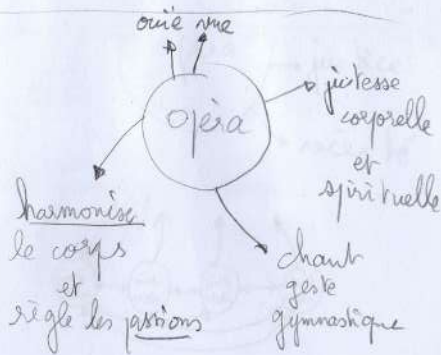 ouïe vue
opéra
justesse
corporelle
et
spirituelle
harmonise
le corps
et
règle les passions
chant
geste
gymnastique